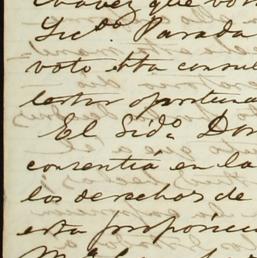 que vo
Lic.º Parada
voto esta consul
lector oportuna
El Sid.º Don
consentia en la
los derechos de
esta proporcion